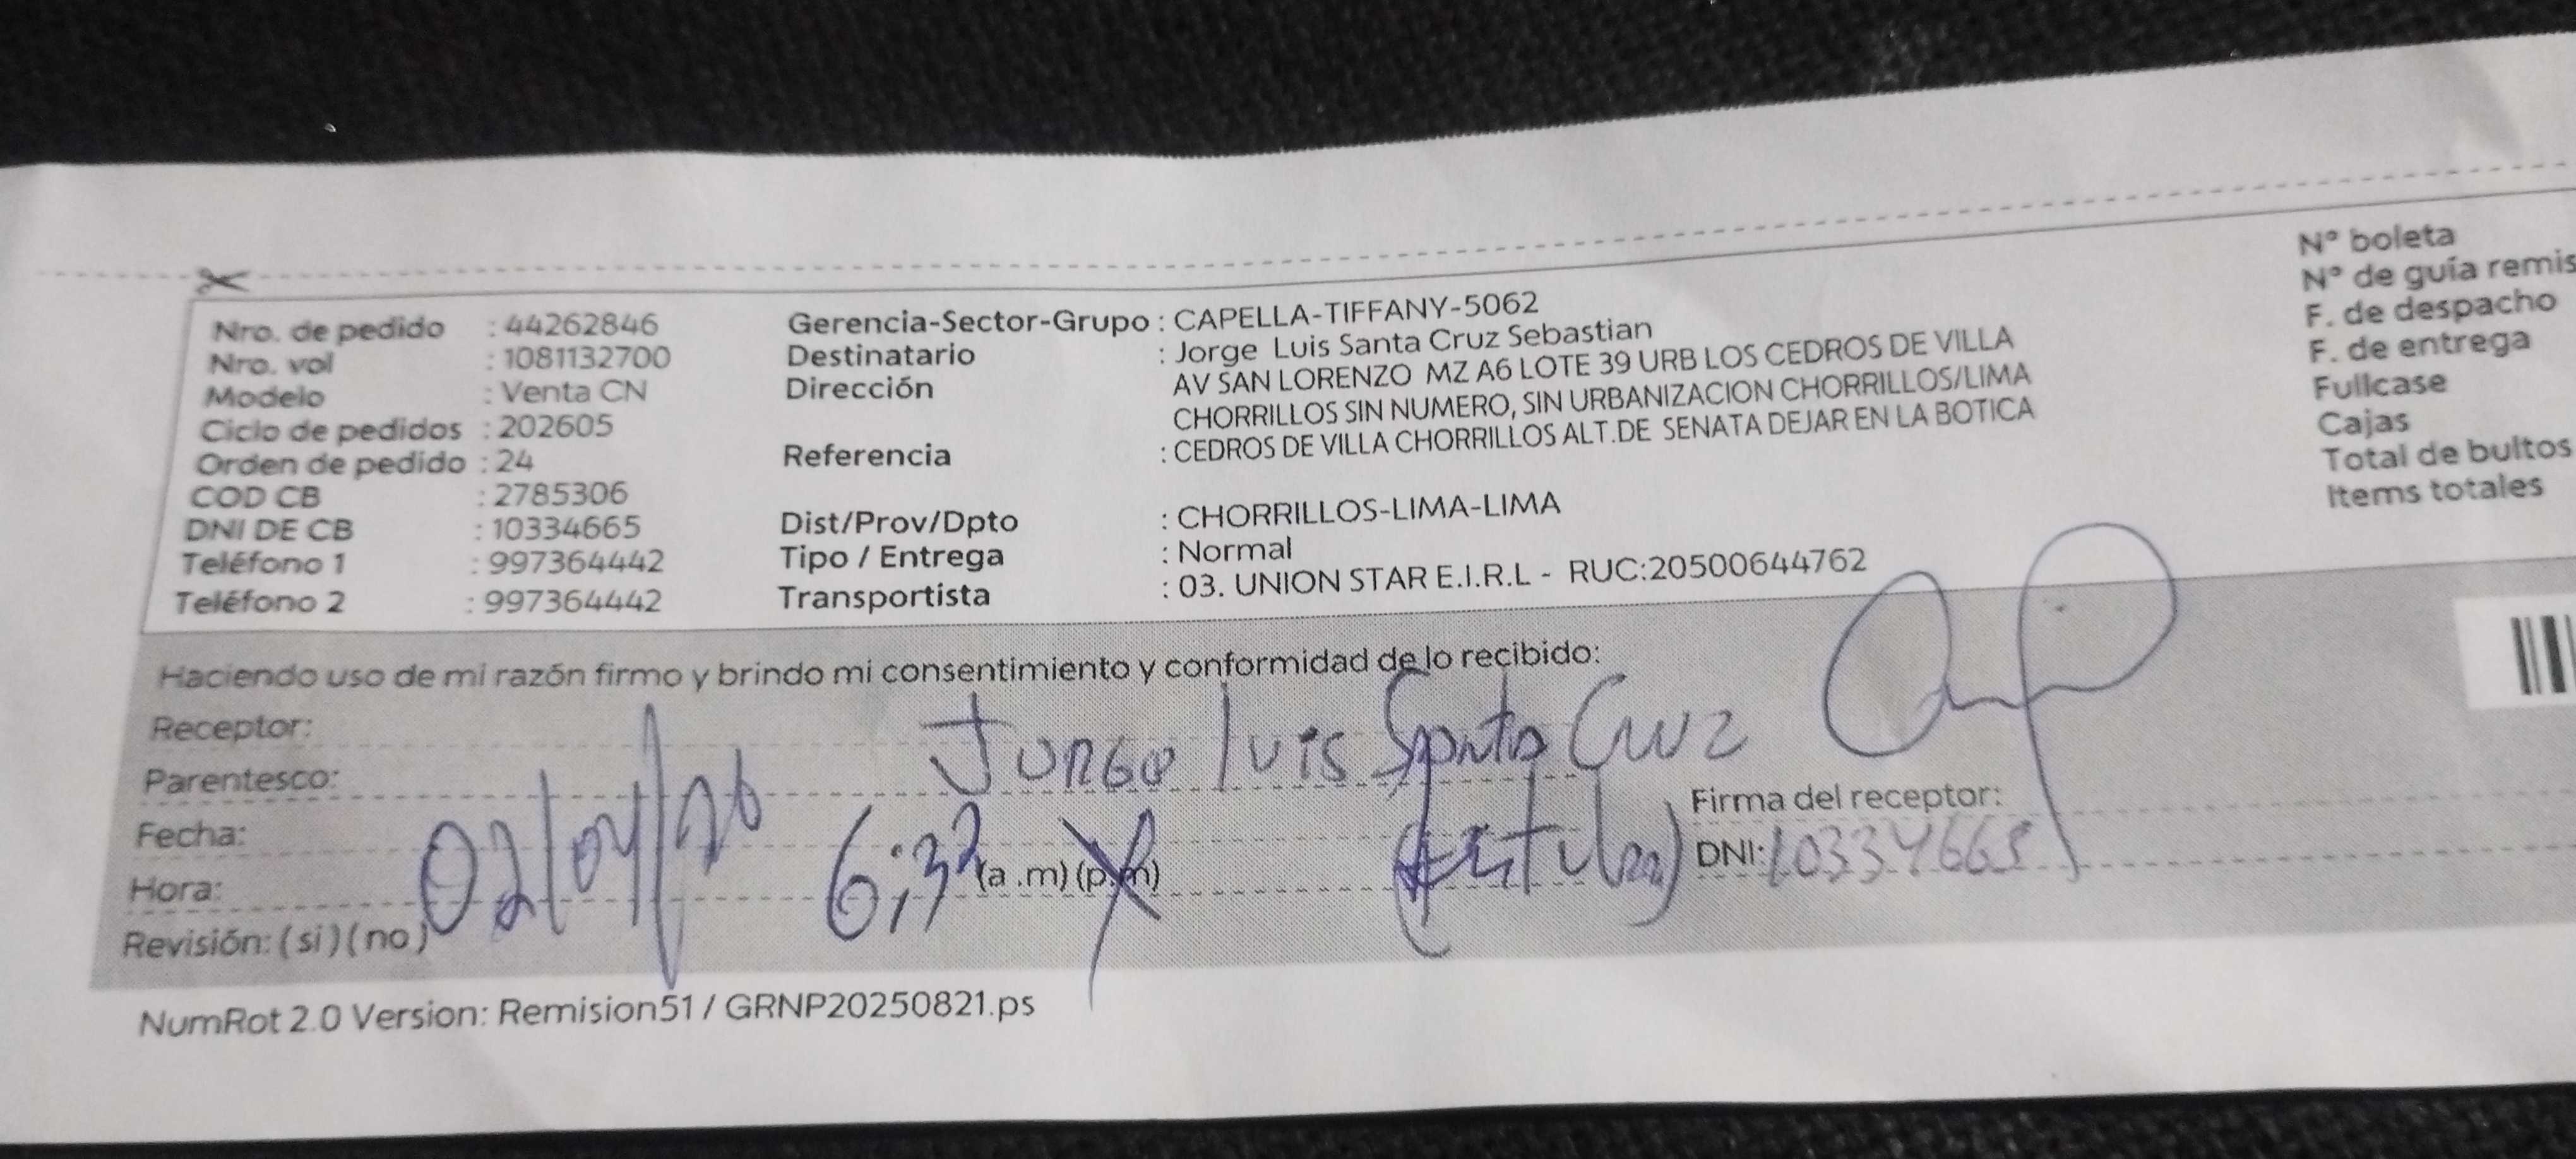 Nro. de pedido : 44262846
Nro. vol : 1081132700
Modelo : Venta CN
Ciclo de pedidos : 202605
Orden de pedido : 24
COD CB : 2785306
DNI DE CB : 10334665
Teléfono 1 : 997364442
Teléfono 2 : 997364442
Gerencia-Sector-Grupo : CAPELLA-TIFFANY-5062
Destinatario : Jorge Luis Santa Cruz Sebastian
Dirección AV SAN LORENZO MZ A6 LOTE 39 URB LOS CEDROS DE VILLA
CHORRILLOS SIN NUMERO, SIN URBANIZACION CHORRILLOS/LIMA
Referencia : CEDROS DE VILLA CHORRILLOS ALT.DE SENATA DEJAR EN LA BOTICA
Dist/Prov/Dpto : CHORRILLOS-LIMA-LIMA
Tipo / Entrega : Normal
Transportista : 03. UNION STAR E.I.R.L - RUC:20500644762
N° boleta
N° de guía remis
F. de despacho
F. de entrega
Fullcase
Cajas
Total de bultos
Items totales
Haciendo uso de mi razón firmo y brindo mi consentimiento y conformidad de lo recibido:
Receptor: Jorge luis Santa Cruz
Parentesco:
Firma del receptor:
Fecha: 02/04/26
Hora: 6:32 (a .m) (p.m)
DNI: 10334665
Revisión: ( si ) ( no )
NumRot 2.0 Version: Remision51 / GRNP20250821.ps